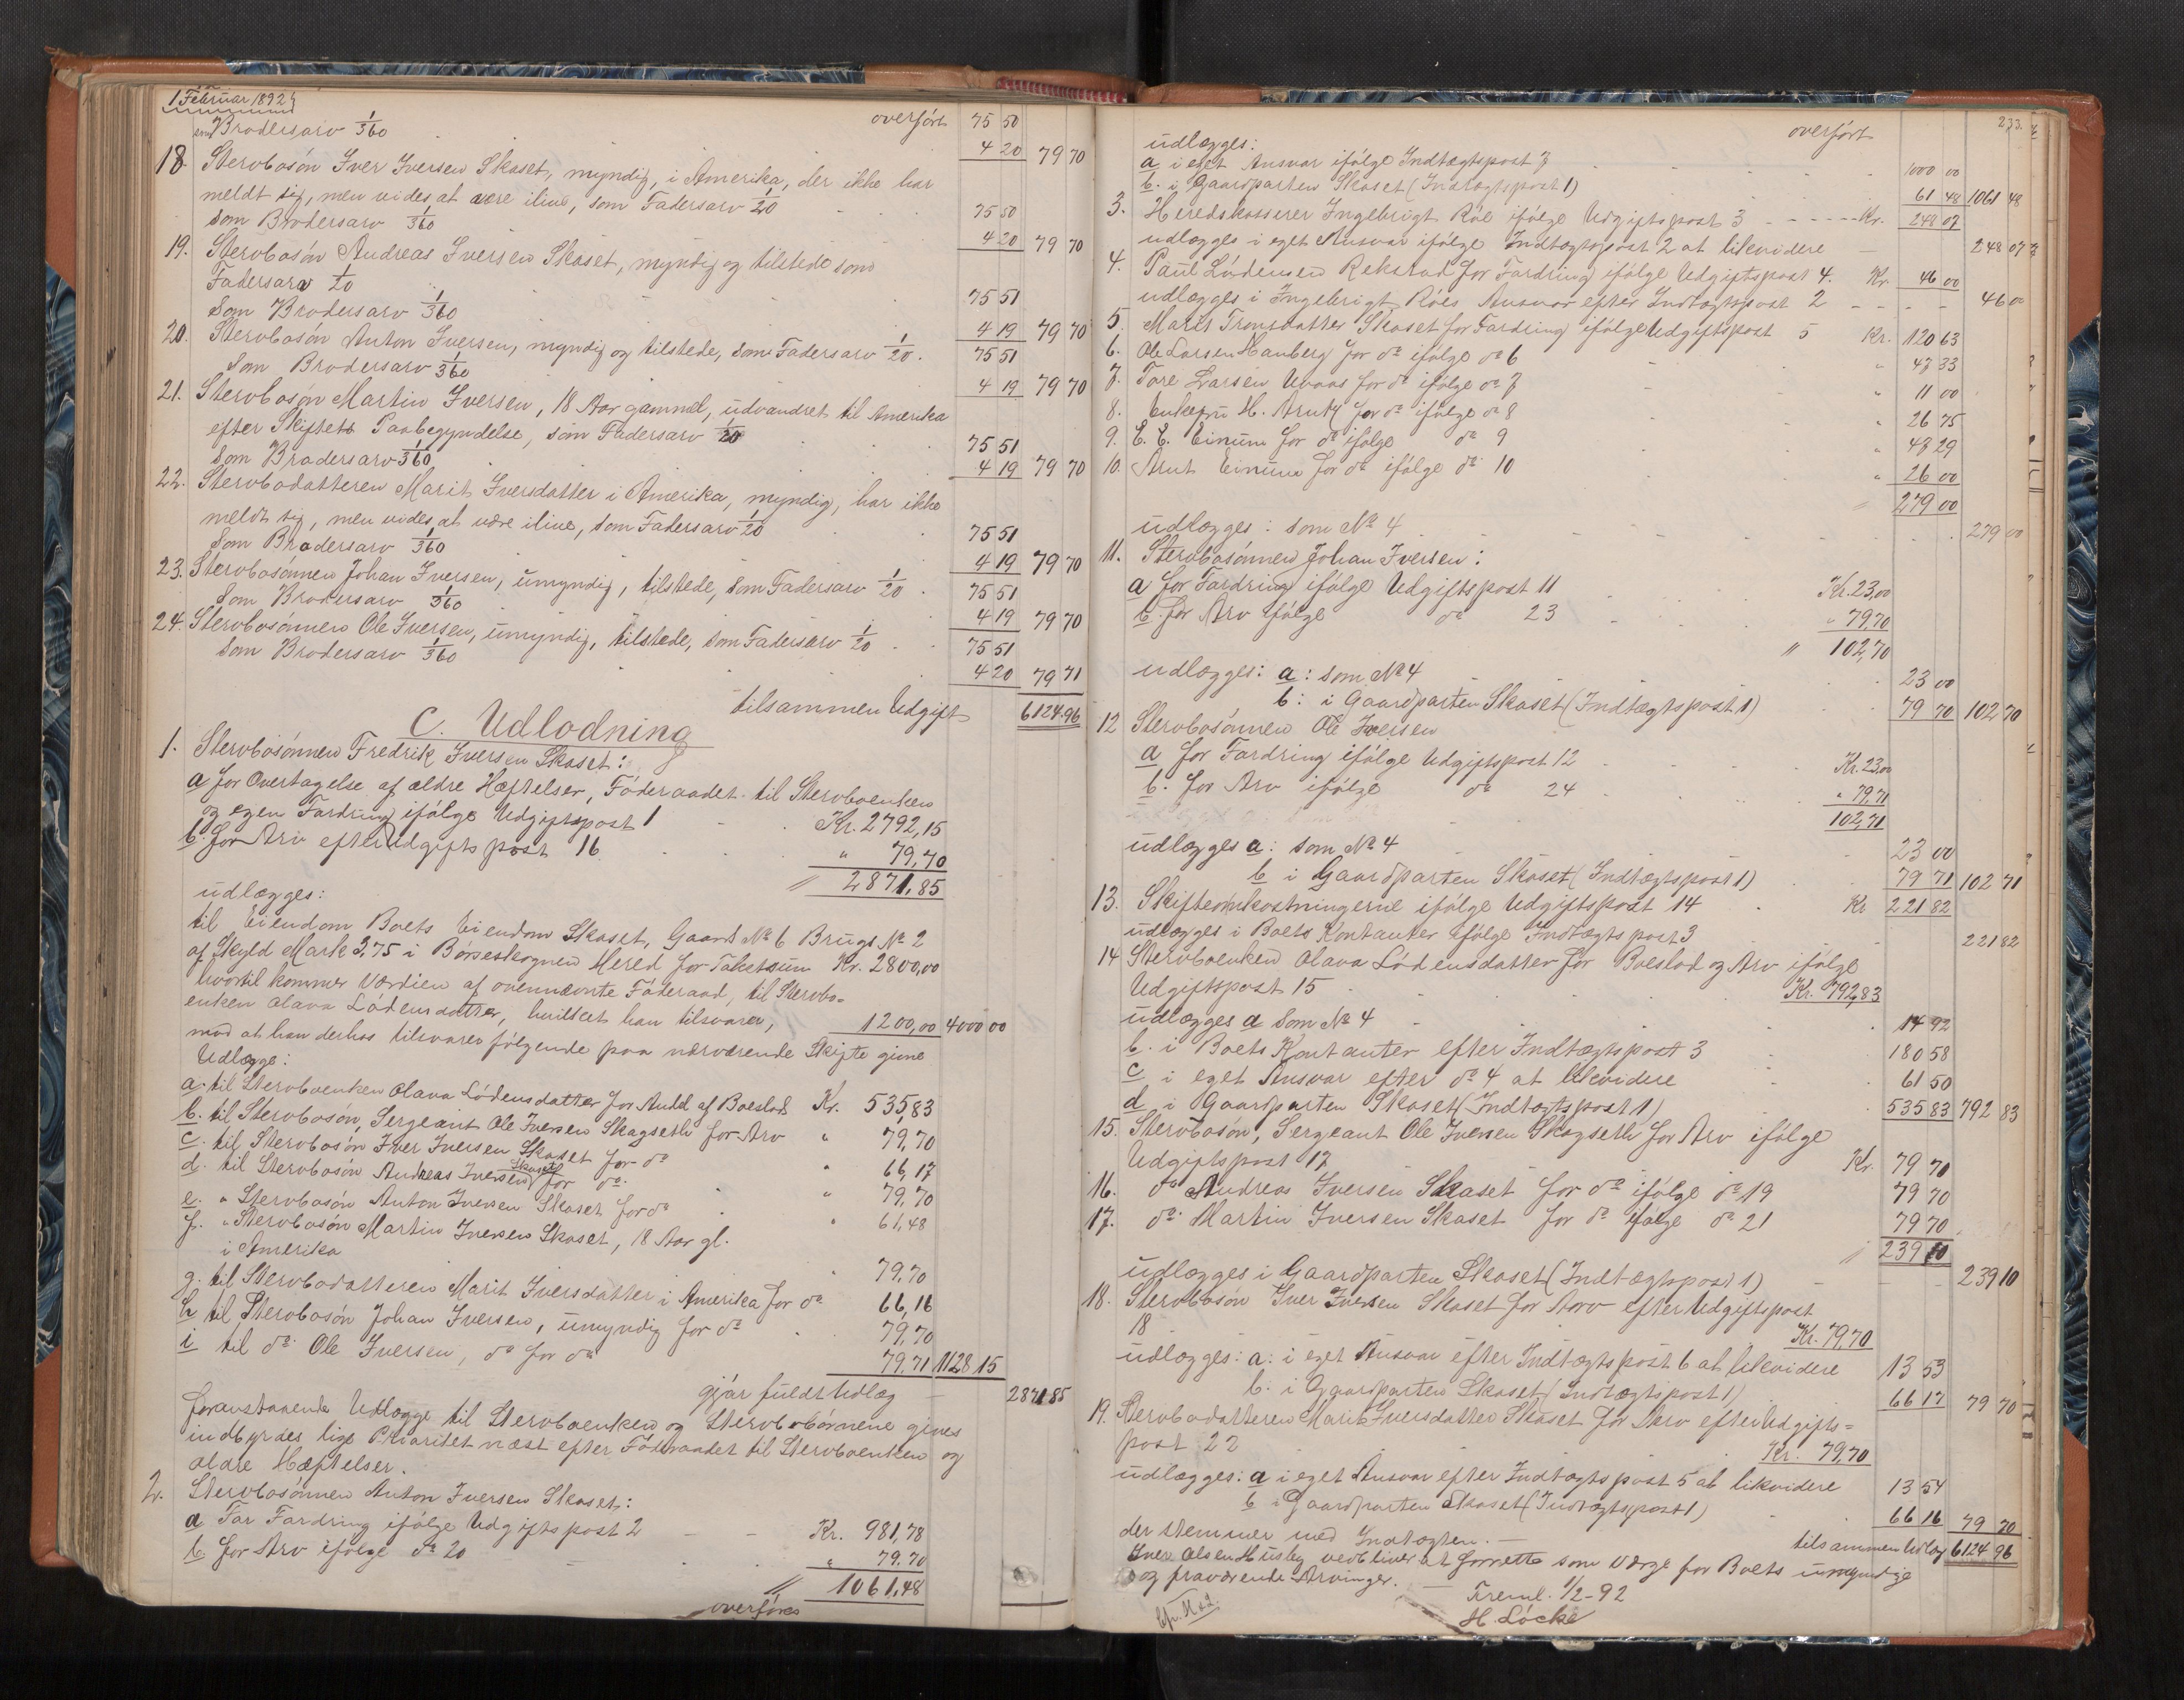 1 Februar 1892
som Brodersarv 1/360 overført 75 50
4 20 79 70
18. Stervbosøn Iver Iversen Skaset, myndig, i Amerika, der ikke har
meldt sig, men vides at være ilive, som Fadersarv 1/20 75 50
som Brodersarv 1/360 4 20 79 70
19. Stervbosøn Andreas Iversen Skaset, myndig og tilstede som
Fadersarv 1/20 75 51
som Brodersarv 1/360 4 19 79 70
20. Stervbosøn Anton Iversen, myndig og tilstede, som Fadersarv 1/20. 75 51
som Brodersarv 1/360 4 19 79 70
21. Stervbosøn Martin Iversen, 18 Aar gammel, udvandret til Amerika
efter Skiftets Paabegyndelse, som Fadersarv 1/20 75 51
som Brodersarv 1/360 4 19 79 70
22. Stervbodatteren Marit Iversdatter i Amerika, myndig, har ikke
meldt sig, men vides at være ilive, som Fadersarv 1/20 75 51
som Brodersarv 1/360 4 19 79 70
23. Stervbosønnen Johan Iversen, umyndig, tilstede, som Fadersarv 1/20. 75 51
som Brodersarv 1/360 4 19 79 70
24. Stervbosønnen Ole Iversen, umyndig, tilstede, som Fadersarv 1/20 75 51
som Brodersarv 1/360 4 20 79 71
tilsammen Udgift 6124.96
C. Udlodning
1. Stervbosønnen Fredrik Iversen Skaset:
a for Overtagelse af ældre Hæftelser, Føderaadet til Stervboenken
og egen Fordring ifølge Udgiftspost 1 Kr. 2792,15
b. for Arv efter Udgifts post 16 " 79,70
" 2871,85
udlægges:
til Eiendom Boets Eiendom Skaset, Gaards No 6 Brugs No 2
af Skyld Mark 3,75 i Børseskognen Hered for Taxtsum Kr. 2800,00
hvortil kommer Værdien af ovennævnte Føderaad, til Stervbo-
enken Olava Lødensdatter, hvilket han tilsvarer, 1200,00 4000 00
mod at han derhos tilsvarer følgende paa nærværende Skifte givne
Udlægge:
a. til Stervboenken Olava Lødensdatter for Andel af Boeslod Kr. 535,83
b. til Stervbosøn, Sergeant Ole Iversen Skagseth for Arv " 79,70
c. til Stervbosøn Iver Iversen Skaset for do " 66,17
d. til Stervbosøn Andreas Iversen Skaset for do. " 79,70
e. " Stervbosøn Anton Iversen Skaset for do " 61,48
f. " Stervbosøn Martin Iversen Skaset, 18 Aar gl.
i Amerika " 79,70
g. til Stervbodatteren Marit Iversdatter i Amerika for do 66,16
h til Stervbosøn Johan Iversen, umyndig for do 79,70
i til do. Ole Iversen, do for do 79,71 1128 15
gjør fuldt Udlæg 2871 85
foranstaaende Udlægge til Stervboenken og Stervbobørnene gives
indbyrdes lige Prioritet næst efter Føderaadet til Stervboenken og
ældre Hæftelser.
2. Stervbosønnen Anton Iversen Skaset:
a For Fordring ifølge Udgiftspost 2 Kr. 981,78
b for Arv ifølge do 20 " 79,70
" 1061,48
overføres
233.
overført
udlægges:
a i eget Ansvar ifølge Indtægtspost 7 1000 00
b. i Gaardparten Skaset (Indtægtspost 1) 61 48 1061 48
3. Heredskasserer Ingebrigt Røe ifølge Udgiftspost 3 Kr. 248 07
udlægges i eget Ansvar ifølge Indtægtspost 2 at likvidere 248 07
4. Paul Lødensen Rekstad for Fordring ifølge Udgiftspost 4. Kr. 46 00
udlægges i Ingebrigt Røes Ansvar efter Indtægtspost 2 46 00
5. Marit Tronsdatter Skaset for Fordring ifølge Udgiftspost 5 Kr. 120 63
6. Ole Larsen Hamberg for do ifølge do 6 " 47 33
7. Tore Larsen for do ifølge do 7 " 11 00
8. Enkefru H. for do ifølge do 8 " 26 75
9. E. E. Einum for do ifølge do 9 " 47 29
10. Arnt Einum for do ifølge do 10 " 26 00
" 279 00
udlægges: som No 4 279 00
11. Stervbosønnen Johan Iversen:
a for Fordring ifølge Udgiftspost 11 Kr. 23,00
b. for Arv ifølge do 23 " 79,70
" 102,70
udlægges: a: som No 4 23 00
b: i Gaardparten Skaset (Indtægtspost 1) 79 70 102 70
12 Stervbosønnen Ole Iversen
a for Fordring ifølge Udgiftspost 12 Kr. 23,00
b. for Arv ifølge do 24 " 79,71
102,71
udlægges a: som No 4 23 00
b i Gaardparten Skaset (Indtægtspost 1) 79 71 102 71
13. Skifteomkostningerne ifølge Udgiftspost 14 Kr 221 82
udlægges i Boets Kontanter ifølge Indtægts post 3 221 82
14 Stervboenken Olava Lødensdatter for Boeslod og Arv ifølge
Udgiftspost 15 Kr. 792,83
udlægges a som No 4 14 92
b. i Boets Kontanter efter Indtægtspost 3 180 58
c i eget Ansvar efter do 4 at likvidere 61 50
d i Gaardparten Skaset (Indtægtspost 1) 535 83 792 83
15. Stervbosøn, Sergeant Ole Iversen Skagseth for Arv ifølge
Udgiftspost 17 Kr. 79 70
16. do Andreas Iversen Skaset for do ifølge do 19 79 70
17. do. Martin Iversen Skaset for do ifølge do 21 79 70
" 239 10
udlægges i Gaardparten Skaset (Indtægtspost 1) 239 10
18. Stervbosøn Iver Iversen Skaset for Arv efter Udgiftspost
18 Kr. 79,70
udlægges: a: i eget Ansvar efter Indtægtspost 6 at likvidere 13 53
b: i Gaardparten Skaset (Indtægtspost 1) 66 17 79 70
19. Stervbodatteren Marit Iversdatter Skaset for Arv efter Udgifts-
post 22 Kr. 79,70
udlægges: a i eget Ansvar efter Indtægtspost 5 at likvidere 13 54
b i Gaardparten Skaset (Indtægtspost 1) 66 16 79 70
der stemmer med Indtægten. tilsammen Udlæg 6124 96
Iver Olsen Husby vedbliver at forrette som Værge for Boets umyndige
og fraværende Arvinger.
Freml. 1/2-92
H. Løcke